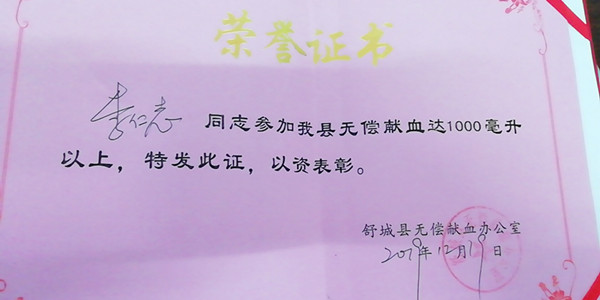 荣誉证书
李仁志 同志参加我县无偿献血达1000毫升
以上，特发此证，以资表彰。
舒城县无偿献血办公室
2019年12月19日